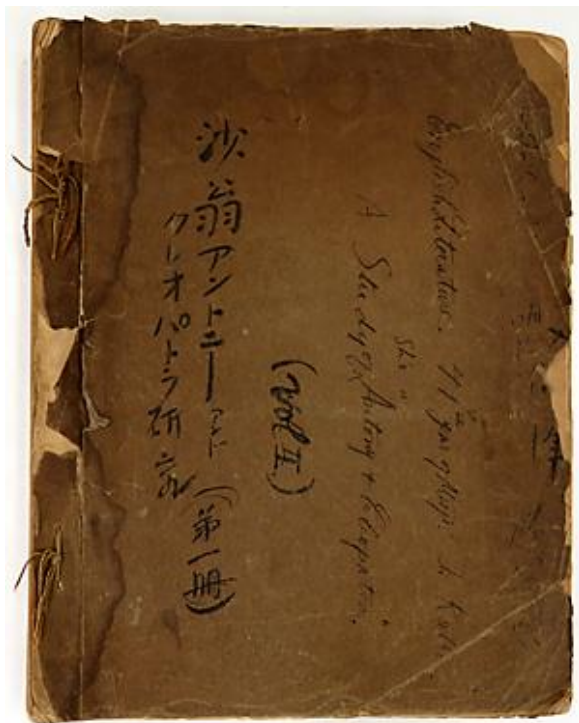 English Literature. 41st year of Meiji
Sh's
A Study of Antony & Cleopatra.
(Vol II)
沙翁アントニーアンド
クレオパトラ研究
(第一冊)